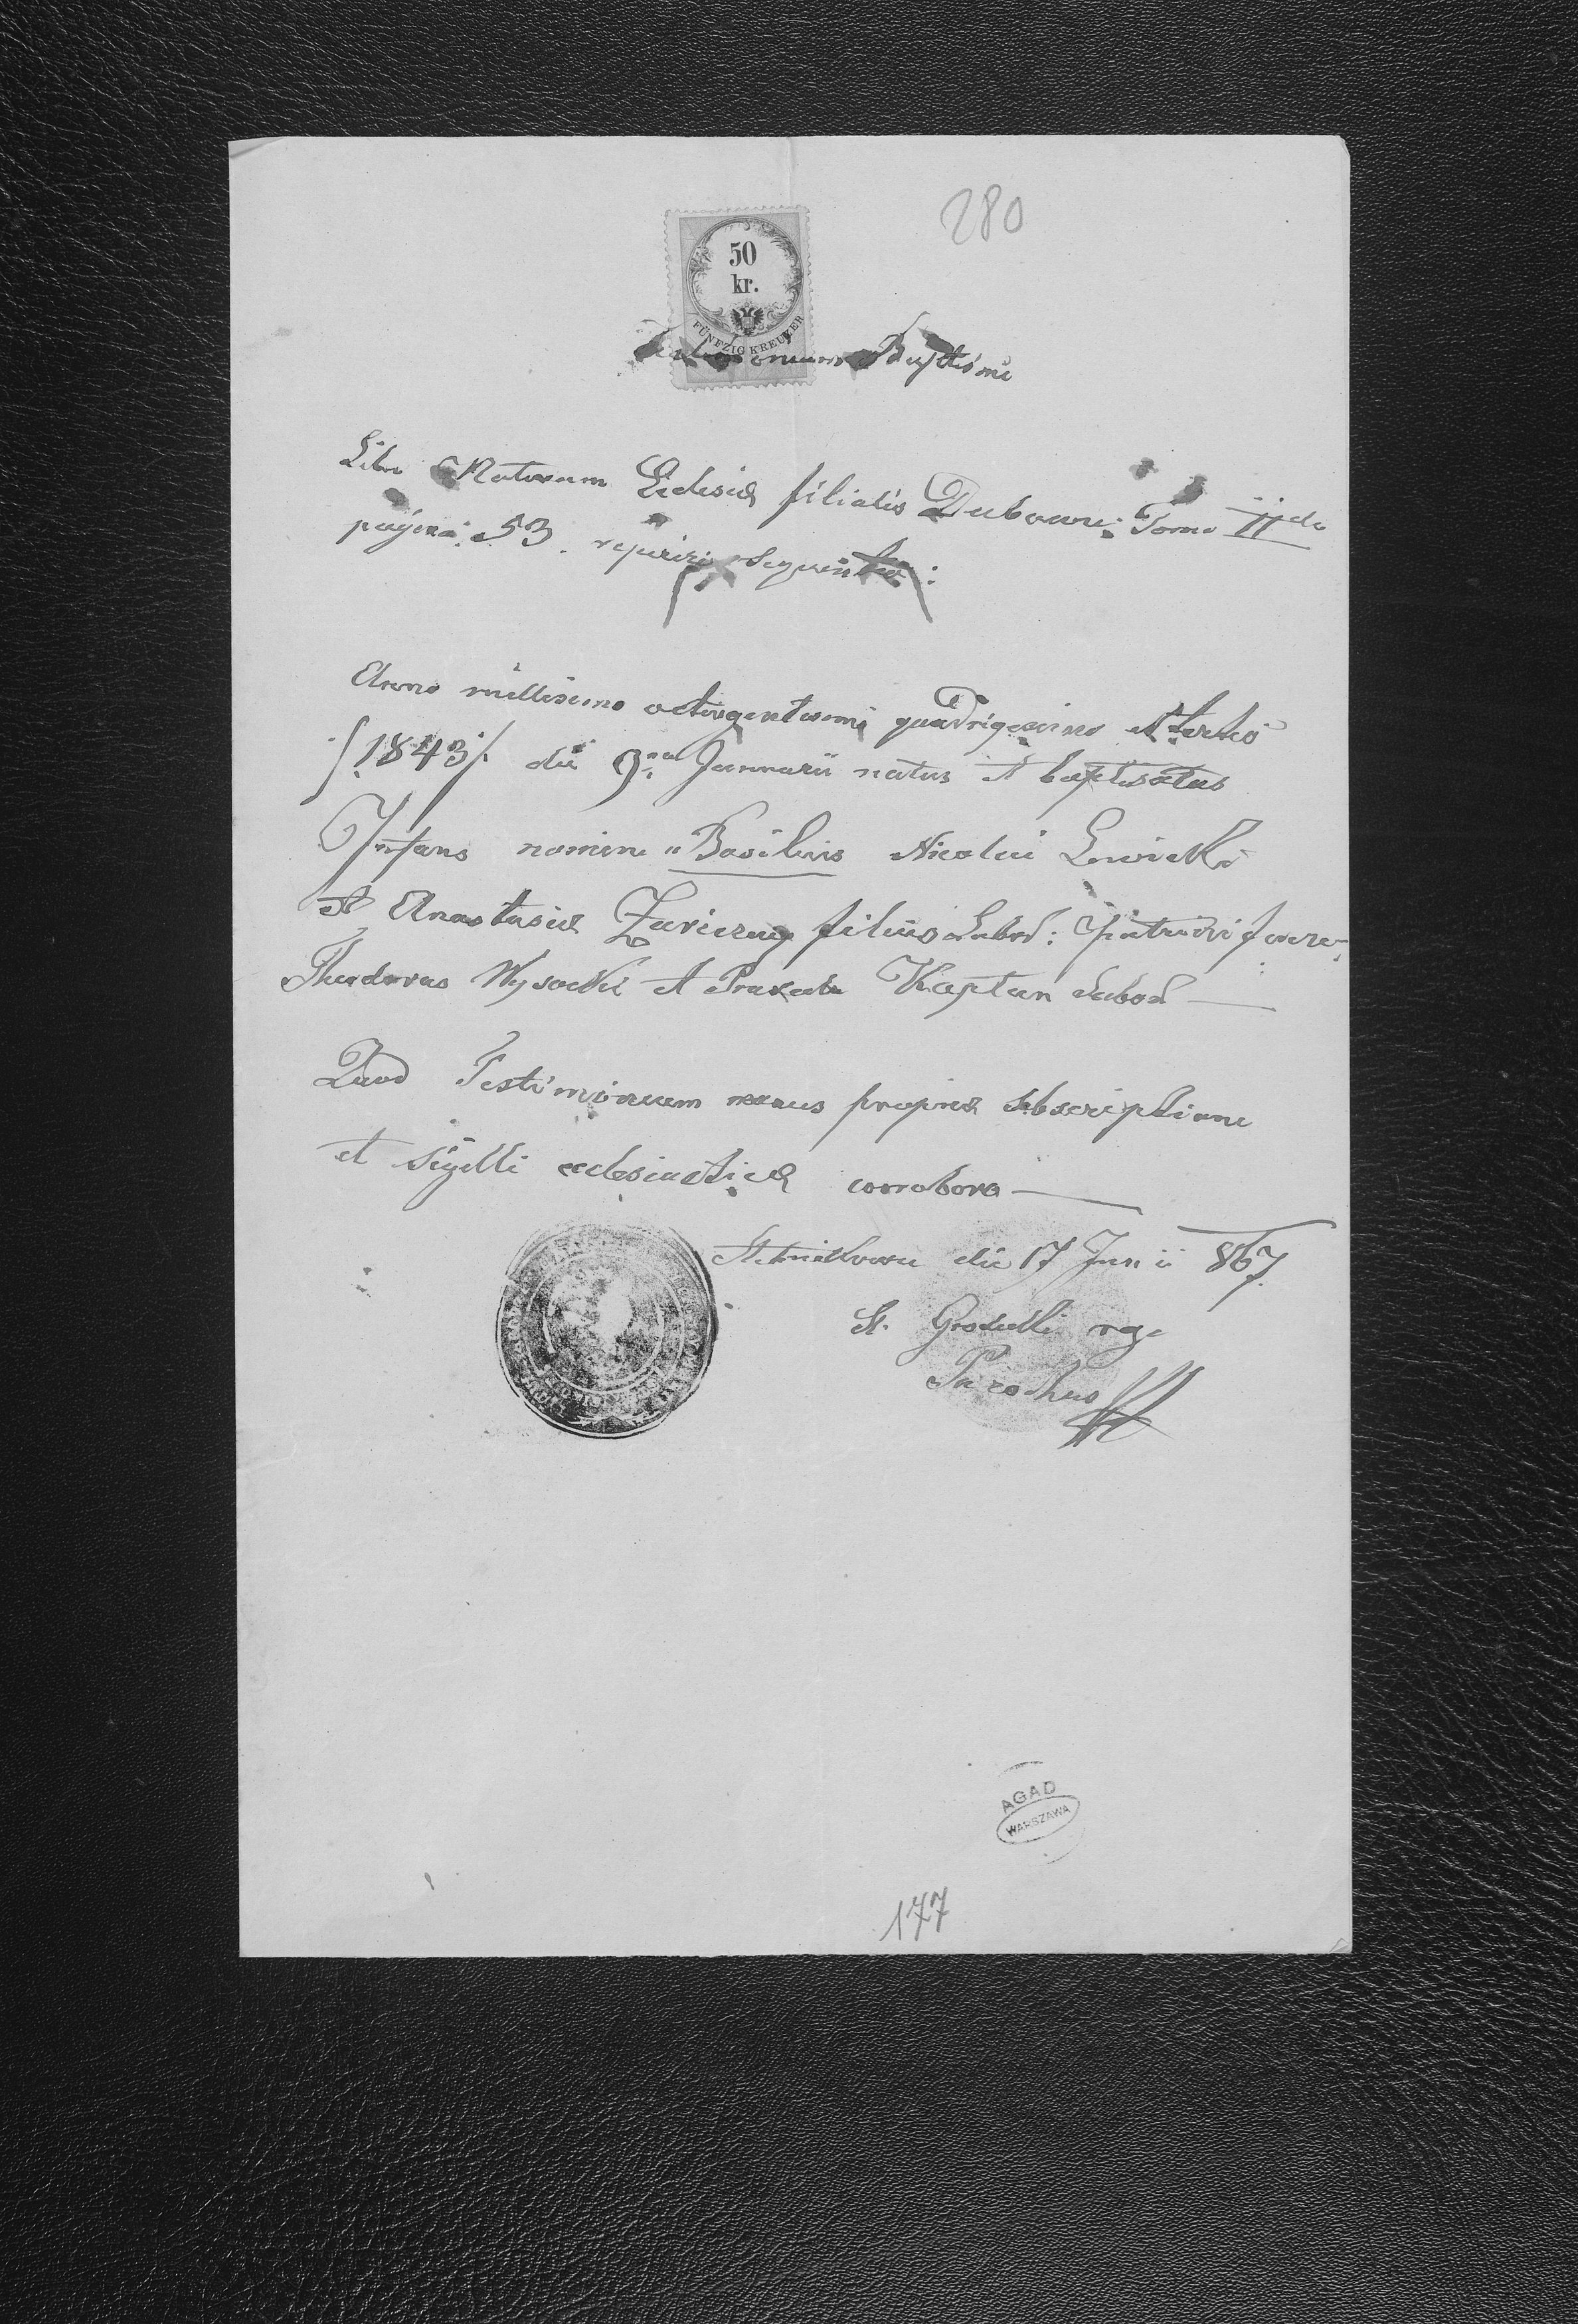 280
50
kr.
FÜNFZIG KREUZER
Testimonium Baptismi
Libro Natorum Eclesiæ filialis Dubowce Tomo II do
pagina 53. reperiri Sequentia:
Anno millesimo octingentesimo quadrigesimo et tertio
/1843/. die 9na Januarii natus et baptisatus
Infans nomine "Basilius Nicolai Lewicki
et Anastasiæ filius Labor: Patrini fuere
Theodorus Wysocki et Praxeda Kaptan Labor
Quod Testimonium manus propriæ subscriptione
et sigilli eclesiasticæ corroboro
die 17 Junii 867
Parochus
AGAD
WARSZAWA
177